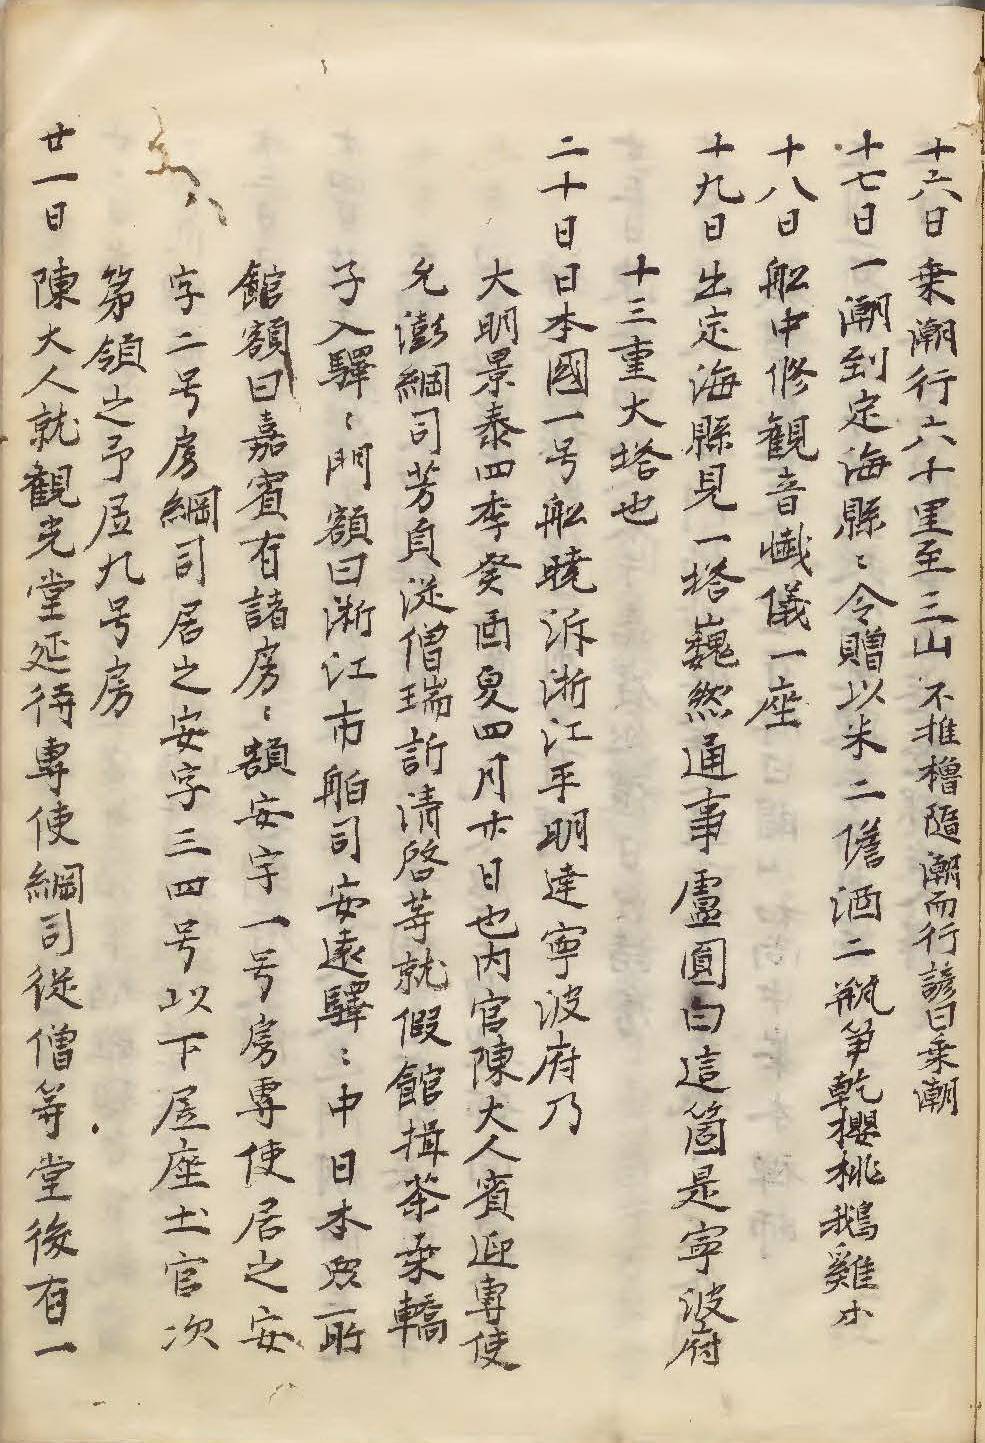 十六日 乗潮行六十里至三山不推櫓隨潮而行諺曰乗潮
十七日 一潮到定海縣〻令贈以米二儋酒二瓶笋乾櫻桃鵝雞尒
十八日 船中修観音懺儀一座
十九日 出定海縣見一塔巍然通事盧圓曰這箇是寧波府
十三重大塔也
二十日 日本國一号船曉泝浙江平明達寧波府乃
大明景泰四季癸酉夏四月廿日也内官陳大人賓迎専使
允澎綱司芳貞従僧瑞訢清啓等就假館揖茶乗轎
子入驛〻門額曰淅江市舶司安遠驛〻中日本衆所
館額曰嘉賓有諸房〻額安字一号房専使居之安
字二号房綱司居之安字三四号以下居座土官次
第領之予居九号房
廿一日 陳大人就観光堂延待専使綱司従僧等堂後有一